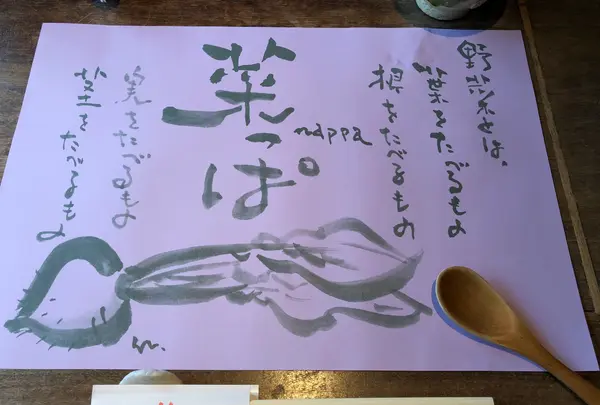 野菜とは、
葉をたべるもよ
根をたべるもの
菜っぱ
nappa
実をたべるもよ
茎をたべるもよ